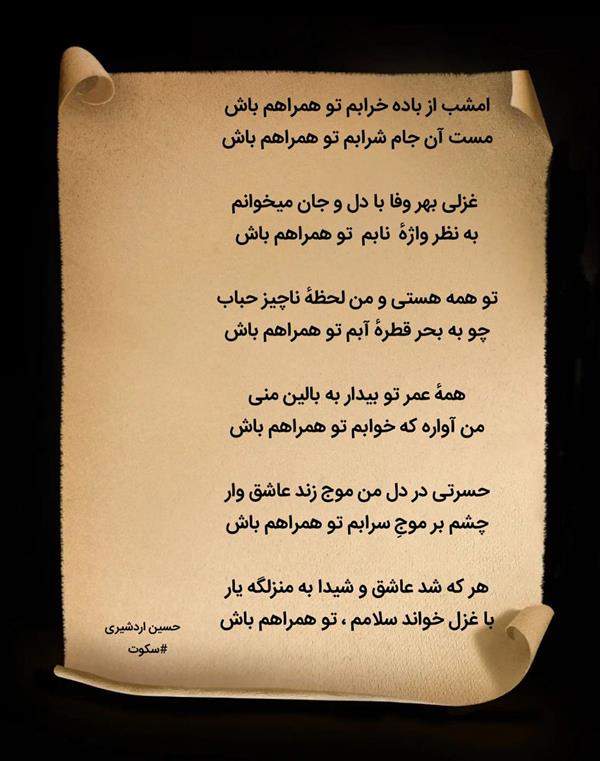 امشب از باده خرابم تو همراهم باش
مست آن جام شرابم تو همراهم باش
غزلی بهر وفا با دل و جان میخوانم
به نظر واژهٔ نابم تو همراهم باش
تو همه هستی و من لحظهٔ ناچیز حباب
چو به بحر قطرهٔ آبم تو همراهم باش
همهٔ عمر تو بیدار به بالین منی
من آواره که خوابم تو همراهم باش
حسرتی در دل من موج زند عاشق وار
چشم بر موجِ سرابم تو همراهم باش
هر که شد عاشق و شیدا به منزلگه یار
با غزل خواند سلامم ، تو همراهم باش
حسین اردشیری
#سکوت